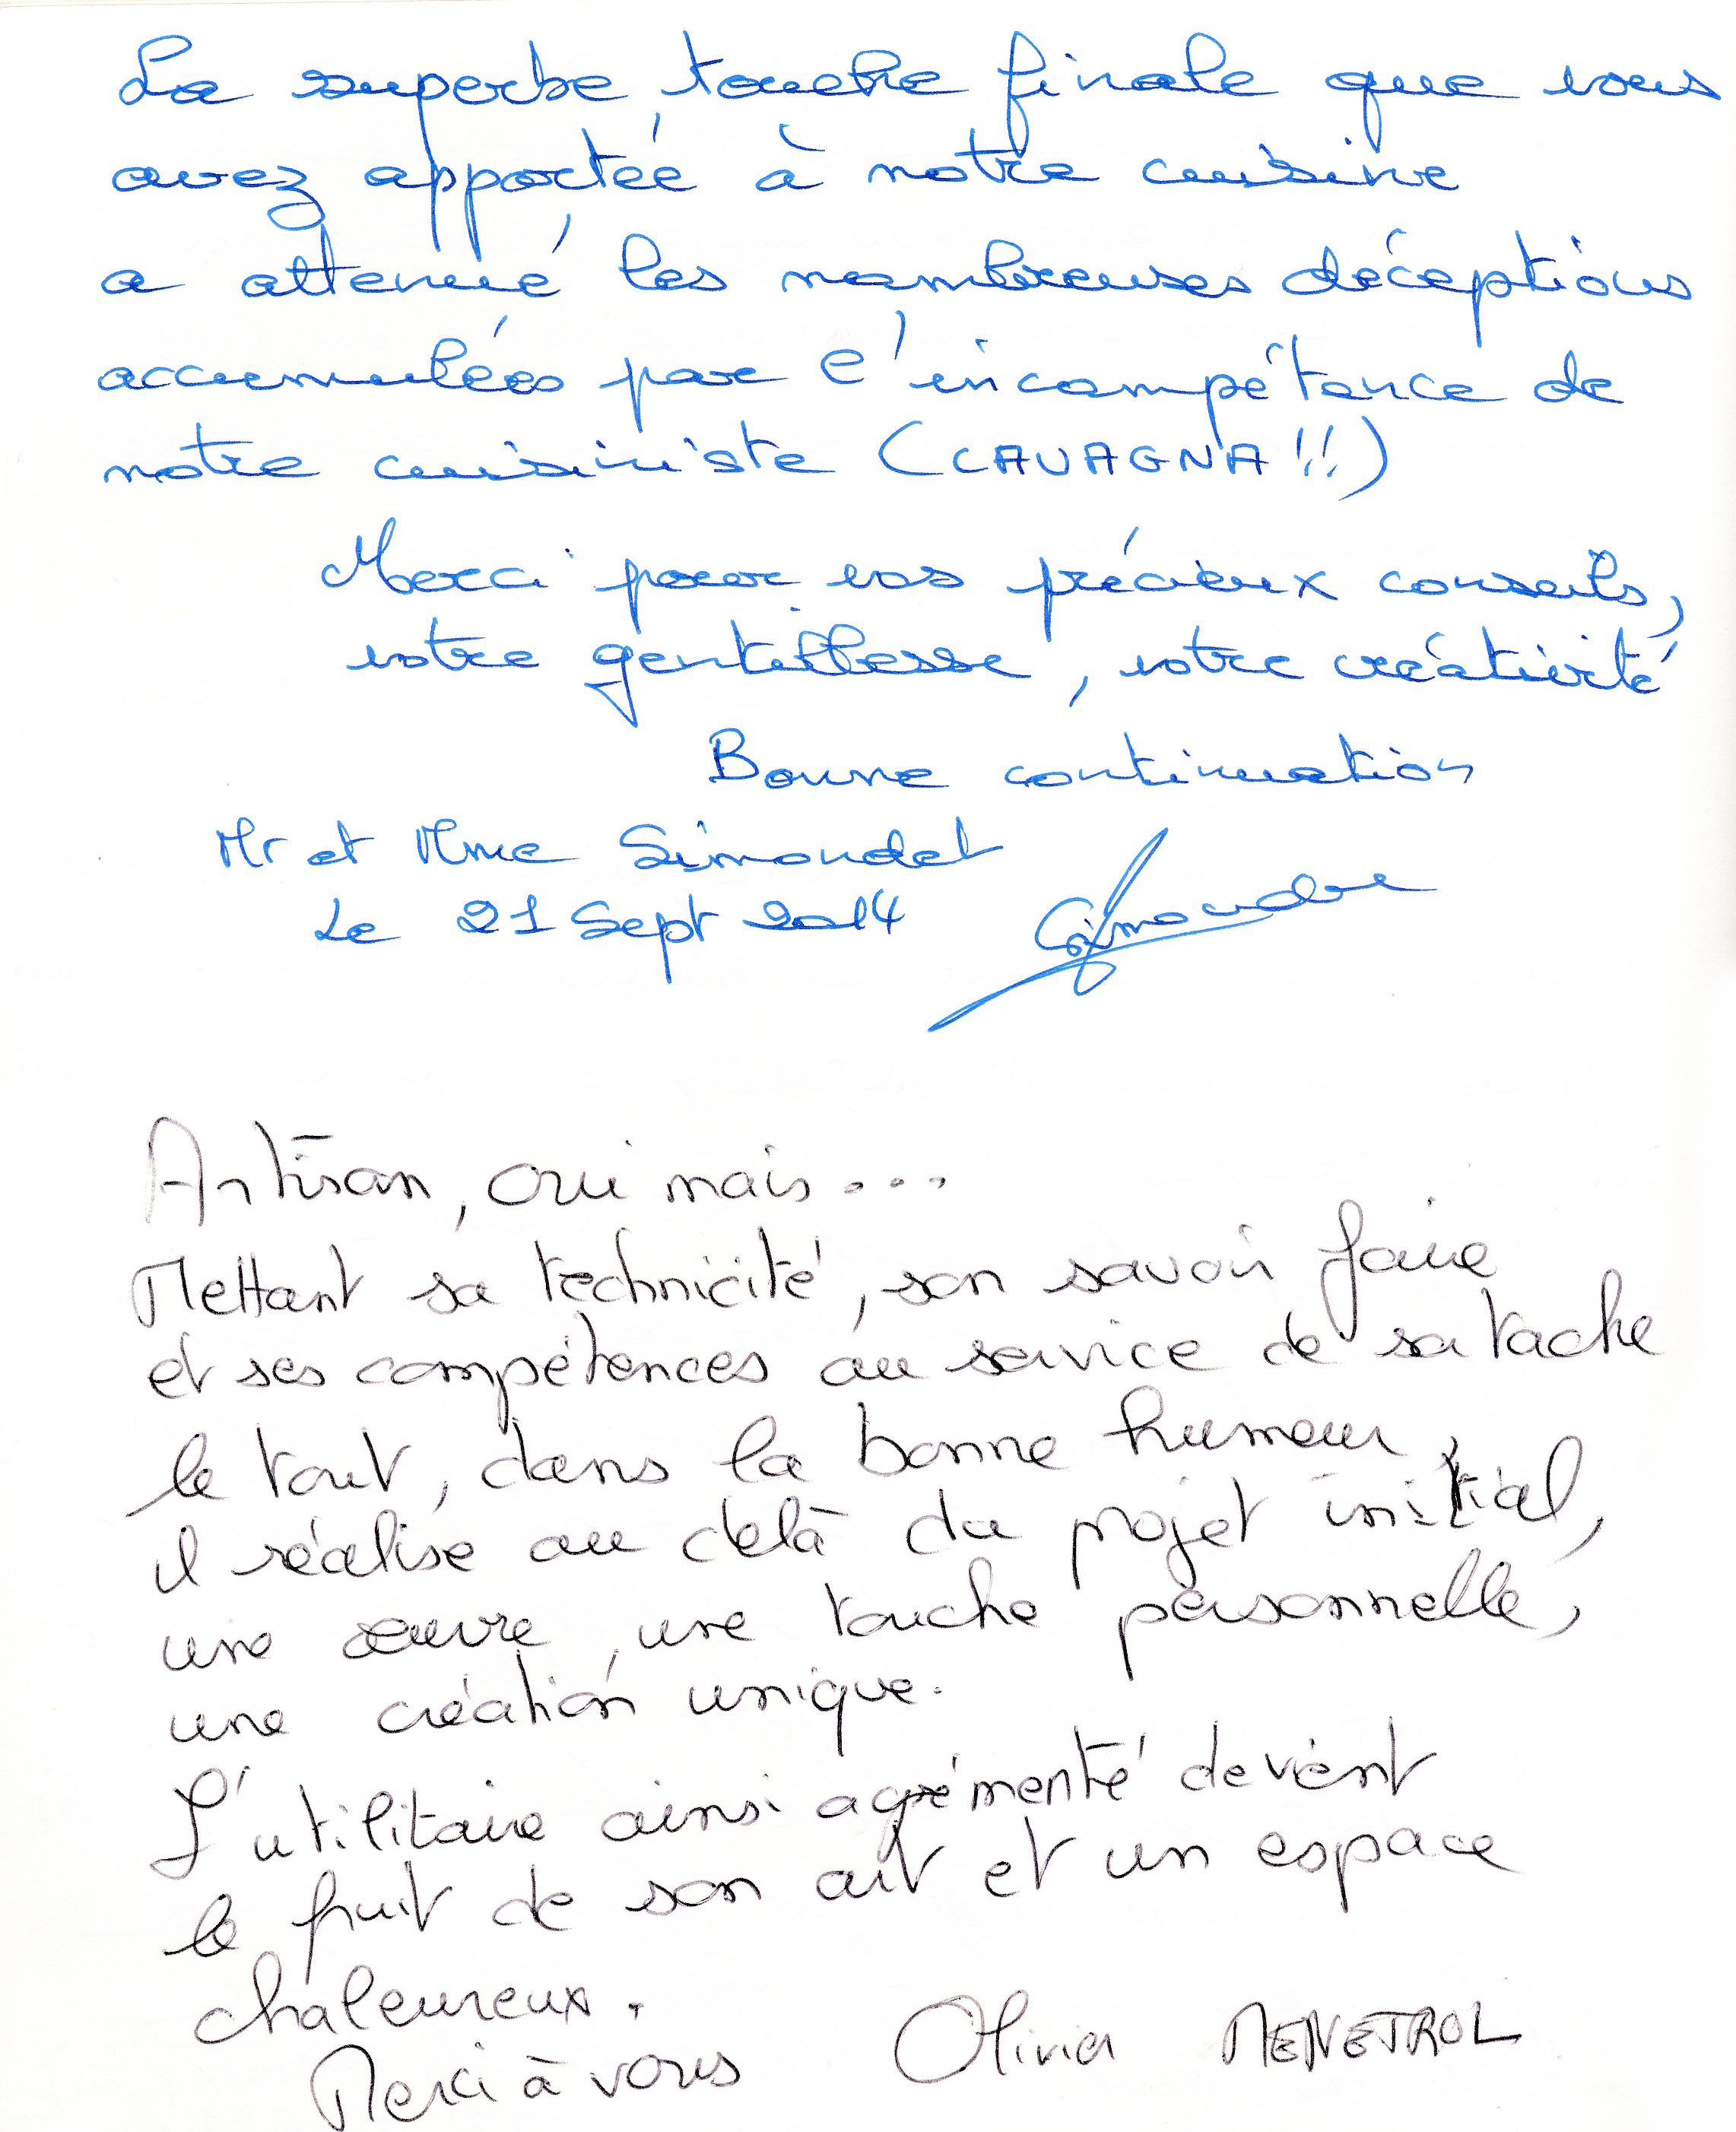 La superbe touche finale que vous
avez apportée à notre cuisine
a attenué les nombreuses déceptions
accumulées par l'incompétence de
notre cuisiniste (CAVAGNA !!)
Merci pour vos précieux conseils,
votre gentillesse, votre créativité
Bonne continuation
Mr et Mme Simondet
Le 21 Sept 2014
Artisan, oui mais...
Mettant sa technicité, son savoir faire
et ses compétences au service de sa tache
le tout, dans la bonne humeur,
il réalise au delà du projet initial,
une œuvre, une touche personnelle,
une création unique.
L'utilitaire ainsi agrémenté devient
le fruit de son art et un espace
chaleureux.
Merci à vous Olivia MENETROL